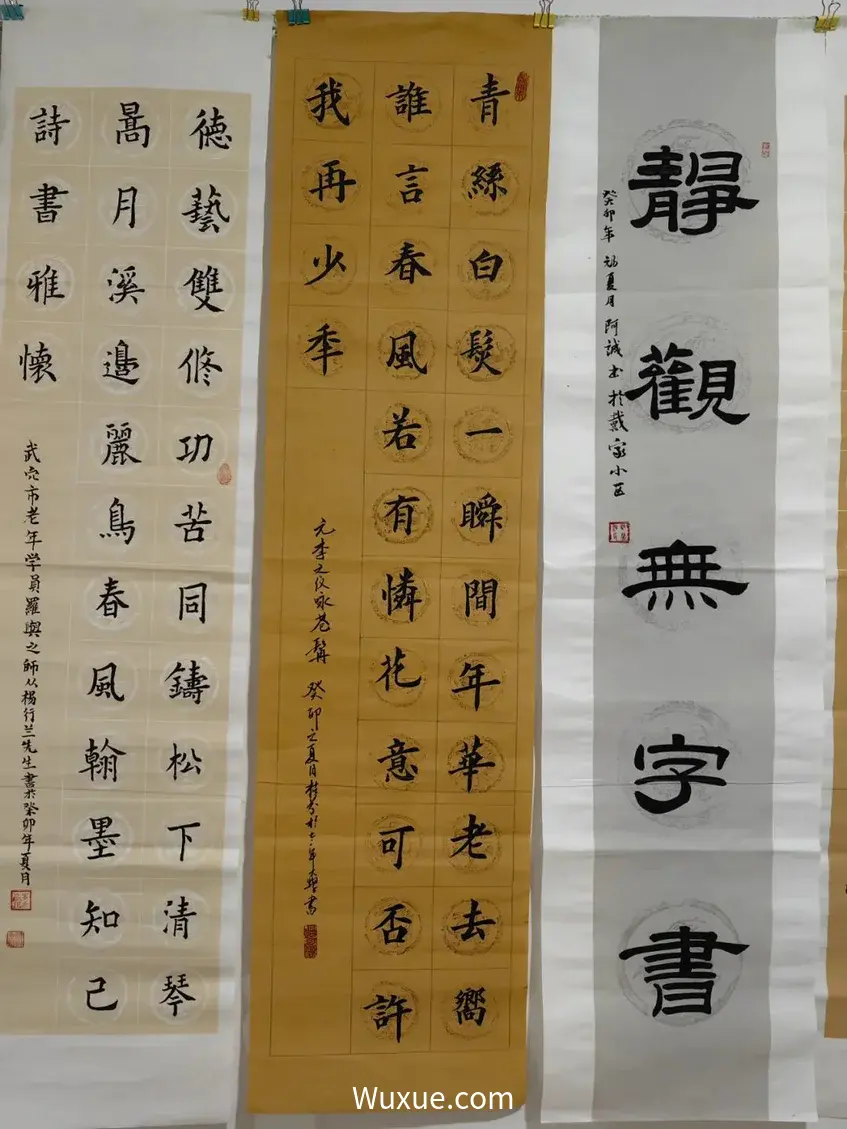 靜觀無字書
癸卯年初夏月阿誠书於戴家小区
青絲白髮一瞬間年華老去嚮
誰言春風若有憐花意可否許
我再少秊
癸卯之夏月
徳藝雙修功苦同鑄松下清琴
暠月溪邊麗鳥春風翰墨知己
詩書雅懷
武穴市老年学員羅與之師从楊行兰先生書於癸卯年夏月
Wuxue.com